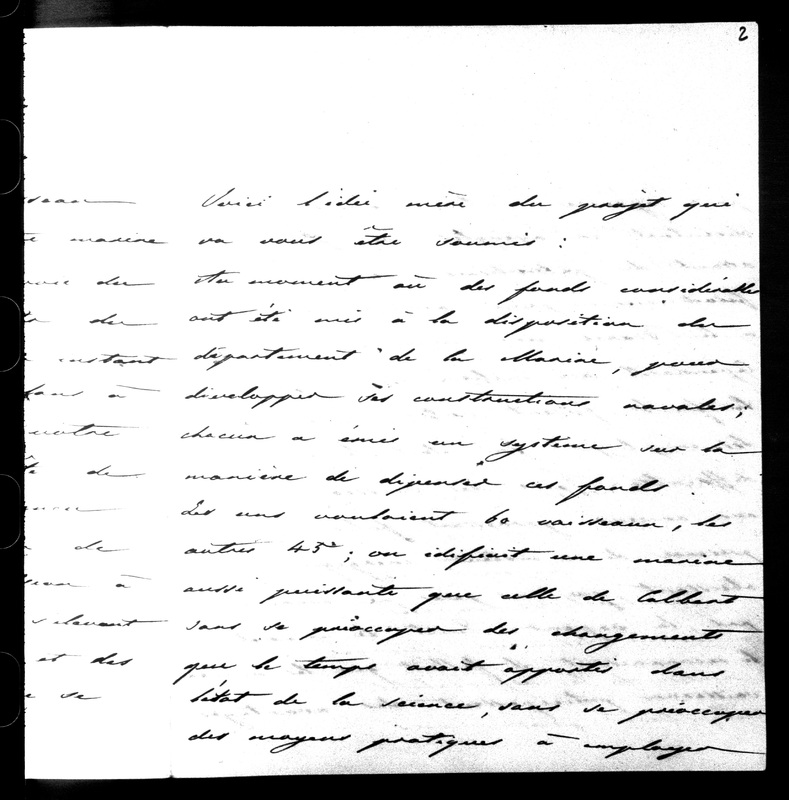 2
Voici l'idée mère du projet qui
va vous être soumis :
Au moment où des fonds considérables
ont été mis à la disposition du
département de la Marine, pour
développer ses constructions navales,
chacun a émis un système sur la
manière de dépenser ces fonds.
Les uns voulaient 60 vaisseaux, les
autres 45 ; on édifiait une marine
aussi puissante que celle de Colbert
sans se préoccuper des changements
que le temps avait apportés dans
l'état de la science, sans se préoccuper
des moyens pratiques à employer
marine
du
du
instant
à
notre
de
de
à
et des
se